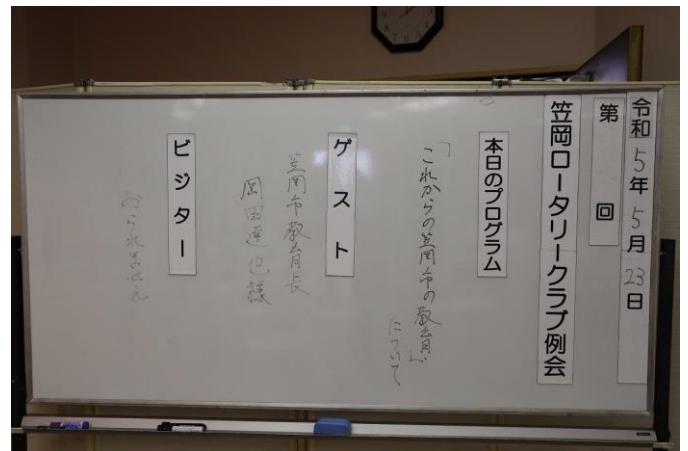 令和5年5月23日
第 回
笠岡ロータリークラブ例会
本日のプログラム
「これからの笠岡市の教育」
について
ゲスト
笠岡市教育長
岡田達也様
ビジター
おられません